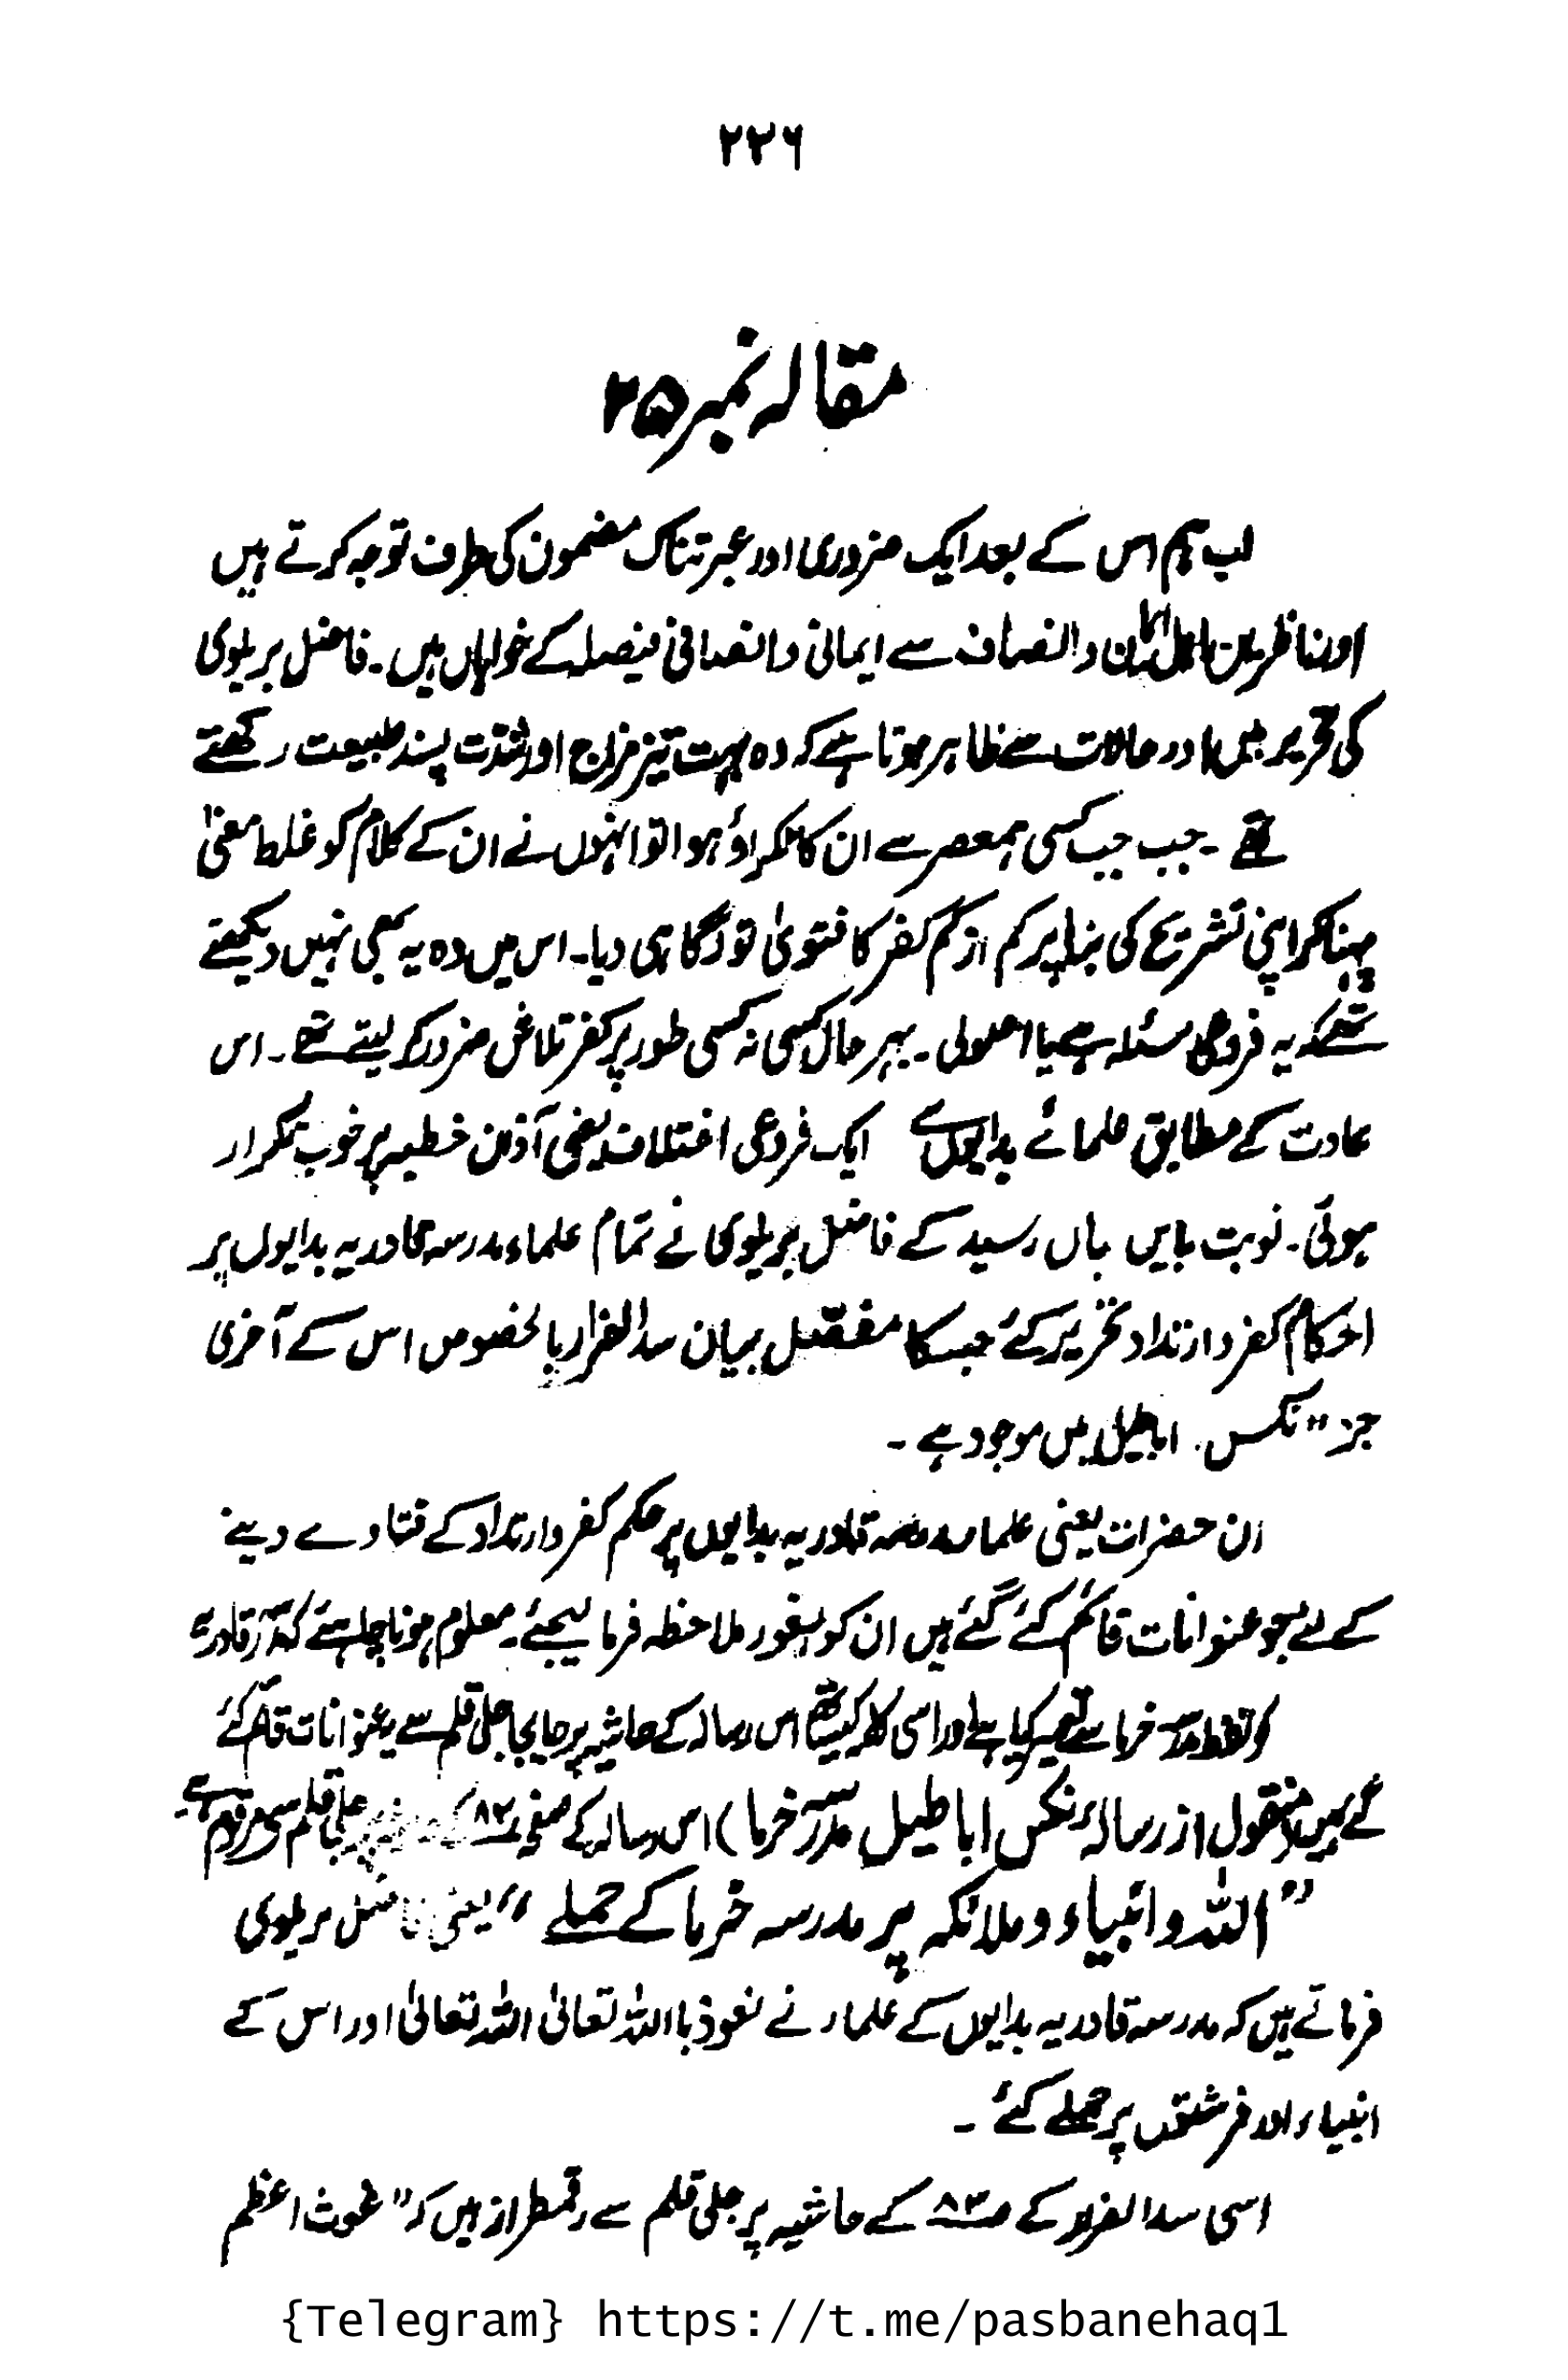 ۲۳۶
مقالہ نمبر ۲۵
اب ہم اس کے بعد ایک ضروری اور عبرتناک مضمون کی طرف توجہ کرتے ہیں
اور ناظرین اہل ایمان و انصاف سے ایمانی و انصافی فیصلہ کے خواہاں ہیں۔ فاضل بریلوی
کی تحریر میں اور حالات سے ظاہر ہوتا ہے کہ وہ بہت تیز مزاج اور شدّت پسند طبیعت رکھتے
تھے۔ جب جب کسی ہمعصر سے ان کا ٹکراؤ ہوا تو انہوں نے ان کے کلام کو غلط معنیٰ
پہنا کر اپنی تشریح کی بنا پر کم از کم کفر کا فتویٰ تو لگا ہی دیا۔ اس میں وہ یہ بھی نہیں دیکھتے
تھے کہ یہ فروعی مسئلہ ہے یا اصولی۔ بہر حال کسی نہ کسی طور پر کفر تلاش ضرور کر لیتے تھے۔ اس
عادت کے مطابق علمائے بدایوں سے ایک فروعی اختلاف یعنی آذان خطبہ پر خوب تکرار
ہوئی۔ نوبت بایں جاں رسید کے فاضل بریلوی نے تمام علماء مدرسہ قادریہ بدایوں پر
احکام کفر و ارتداد تحریر کئے جسکا مفصّل بیان سد الفرار بالخصوص اس کے آخری
جز "نکس اباطیل میں موجود ہے۔
ان حضرات یعنی علماء مدرسہ قادریہ بدایوں پر حکم کفر و ارتداد کے فتاوے دینے
کے لئے جو عنوانات قائم کئے گئے ہیں ان کو بغور ملاحظہ فرما لیجئے۔ معلوم ہونا چاہئے کہ مدرسہ قادریہ
کو مدرسہ خرما سے تعبیر کیا ہے اور اسی کے ساتھ اس رسالہ کے حاشیہ پر جابجا جلی قلم سے یہ عنوانات قائم کئے
گئے ہیں (منقول از رسالہ نکس اباطیل مدرسہ خرما) اس رسالہ کے صفحہ ۸۲ کے پر جلی قلم سے مرقوم ہے۔
"اللہ و انبیاء و ملائکہ پر مدرسہ خرما کے حملے" یعنی فاضل بریلوی
فرماتے ہیں کہ مدرسہ قادریہ بدایوں کے علماء نے نعوذ باللہ تعالیٰ اللہ تعالیٰ اور اس کے
انبیاء اور فرشتوں پر حملے کئے۔
اسی سد الفرار کے ص۸۳ کے حاشیہ پر جلی قلم سے رقمطراز ہیں کہ "غوث اعظم
{Telegram} https://t.me/pasbanehaq1